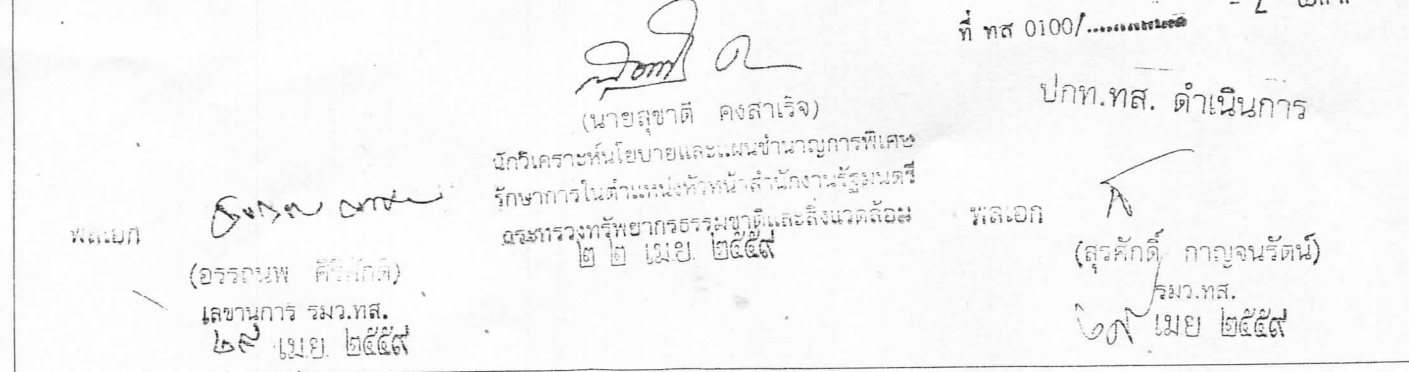 ที่ ทส 0100/
(นายสุชาติ คงสำเร็จ)
นักวิเคราะห์นโยบายและแผนชำนาญการพิเศษ
รักษาการในตำแหน่งหัวหน้าสำนักงานรัฐมนตรี
กระทรวงทรัพยากรธรรมชาติและสิ่งแวดล้อม
๒ ๒ เม.ย. ๒๕๕๙
พลเอก
(อรรถนพ ศิริศักดิ์)
เลขานุการ รมว.ทส.
๒๙ เม.ย. ๒๕๕๙
ปกท.ทส. ดำเนินการ
พลเอก
(สุรศักดิ์ กาญจนรัตน์)
รมว.ทส.
๒๙ เมย ๒๕๕๙